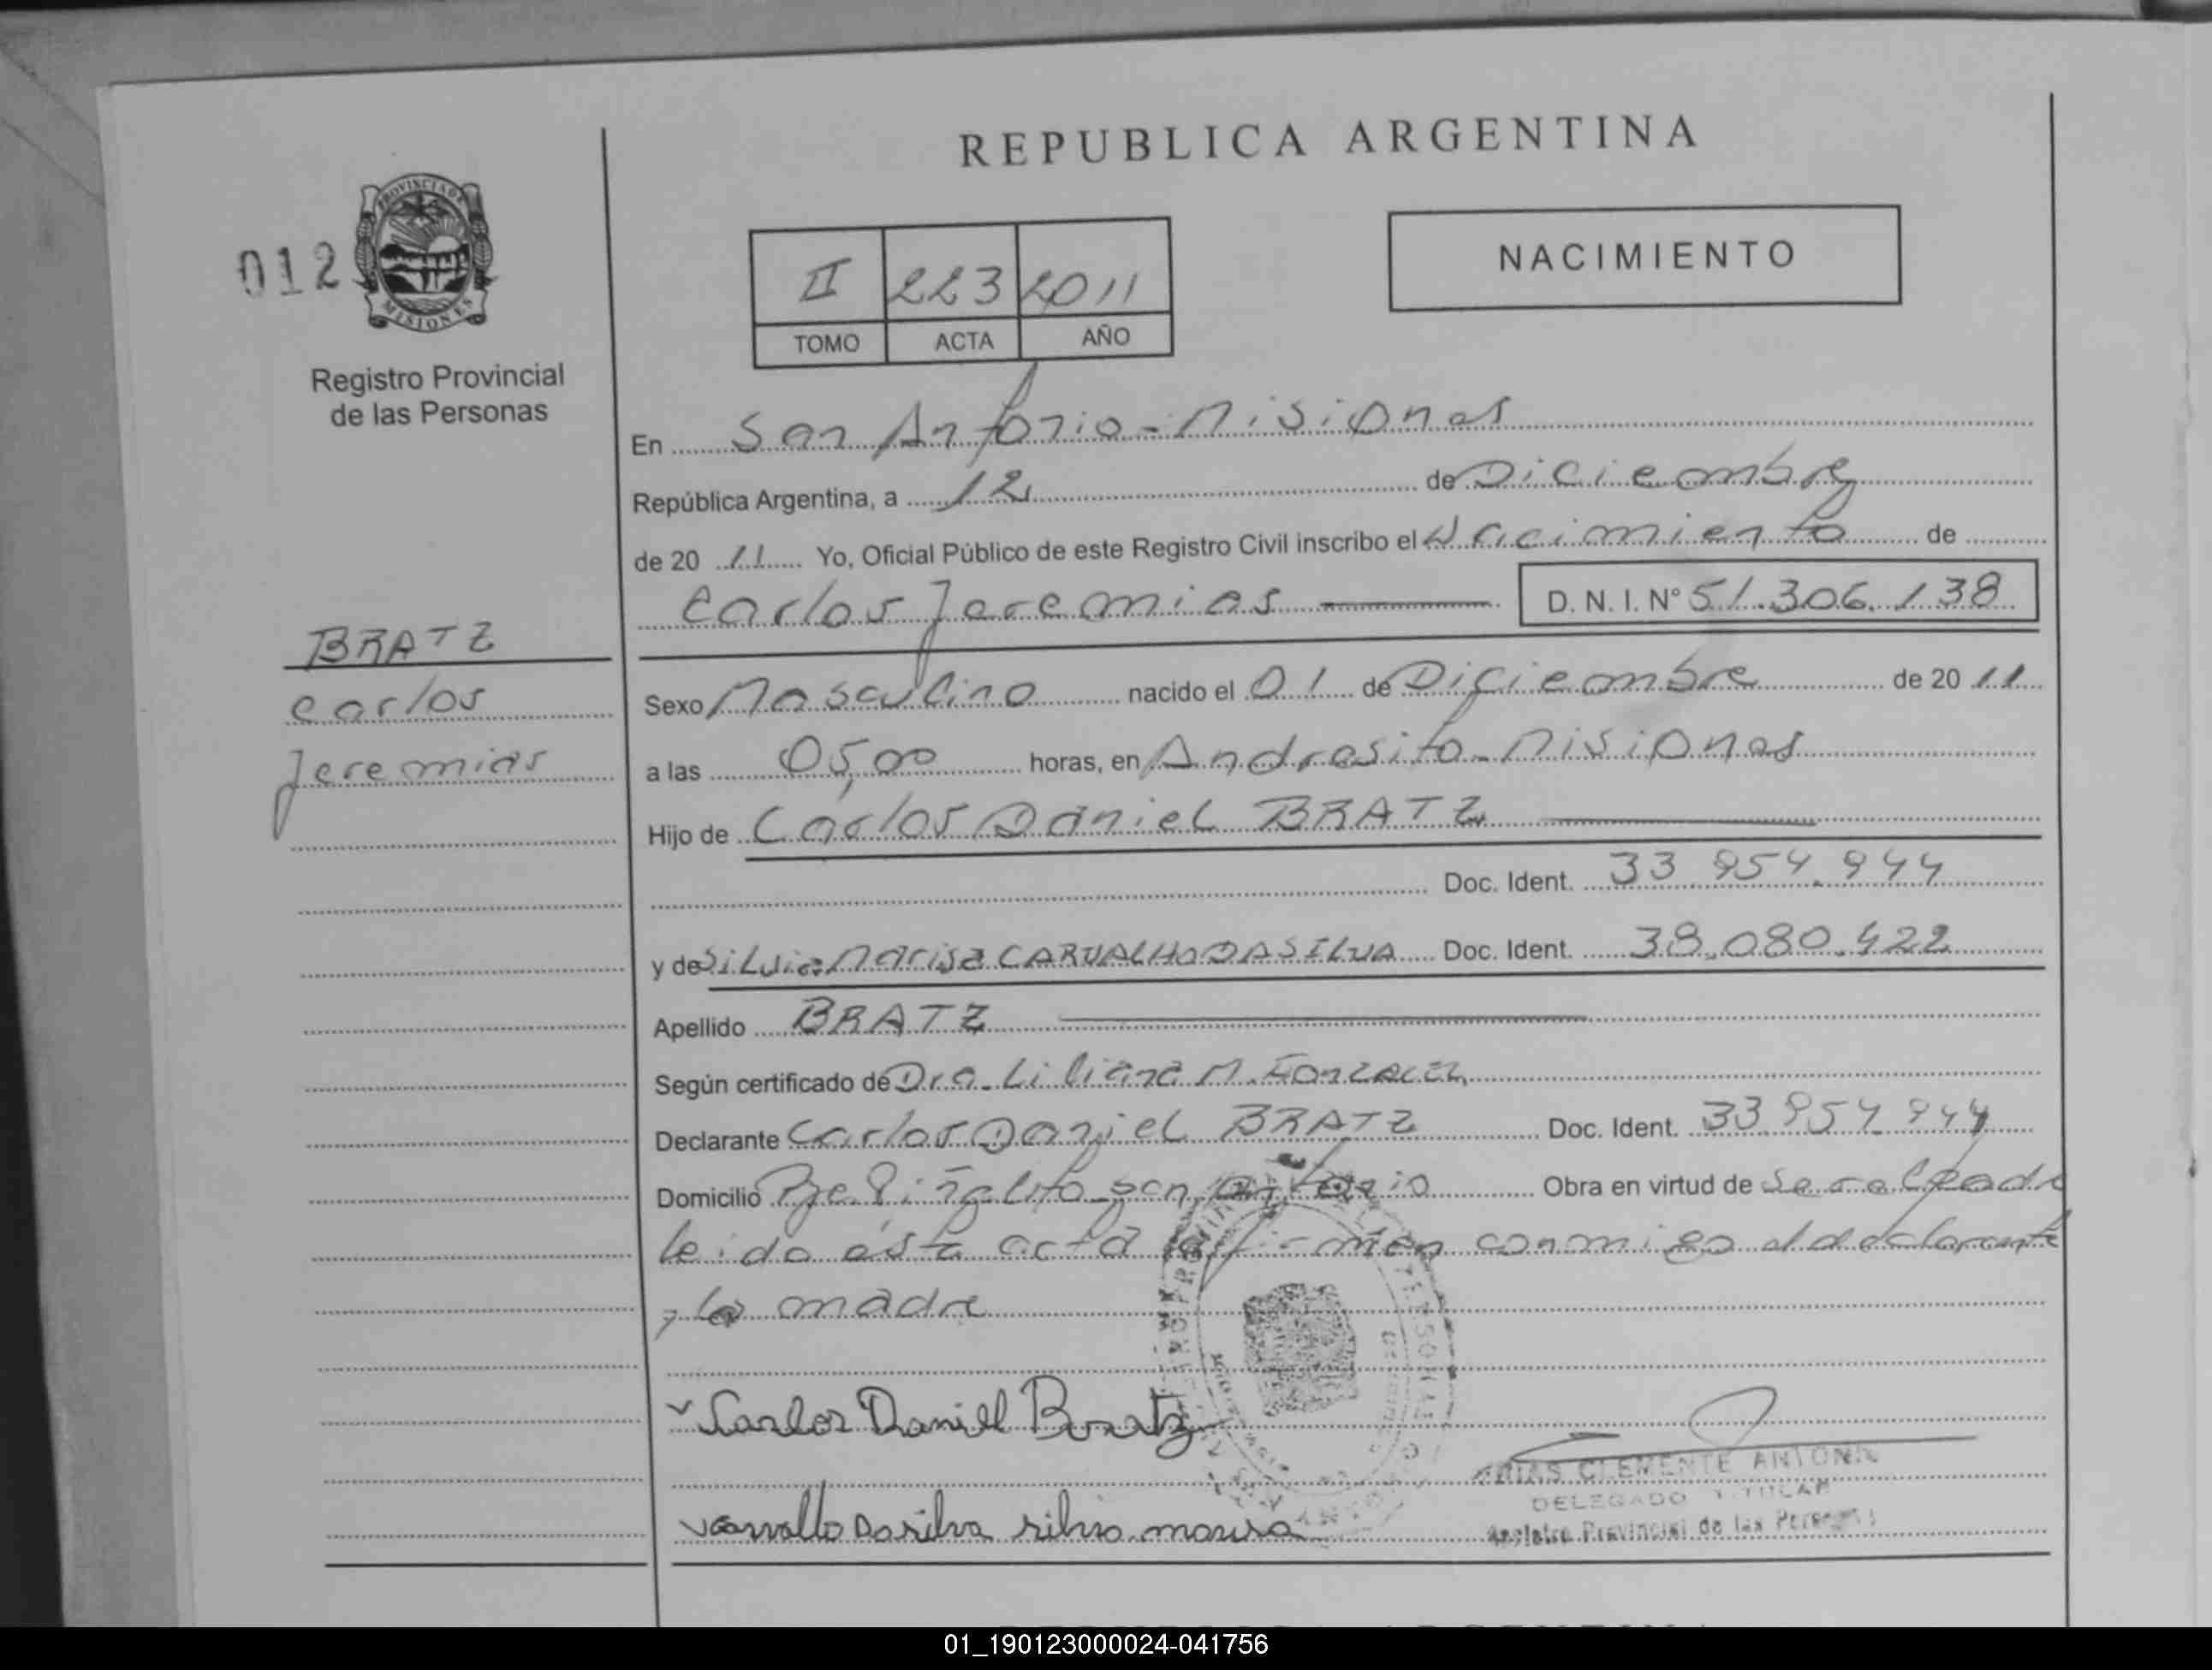 REPUBLICA ARGENTINA
NACIMIENTO
012
PROVINCIA DE
MISIONES
Registro Provincial
de las Personas
II 223 2011
TOMO ACTA AÑO
En San Antonio - Misiones
República Argentina, a 12 de Diciembre
de 20 11 Yo, Oficial Público de este Registro Civil inscribo el Nacimiento de
Carlos Jeremias D. N. I. N° 51.306.138
BRATZ
Carlos
Jeremias
Sexo Masculino nacido el 01 de Diciembre de 20 11
a las 05,00 horas, en Andresito - Misiones
Hijo de Carlos Daniel BRATZ
Doc. Ident. 33.954.944
y de Silvia Marisa CARVALHO DA SILVA Doc. Ident. 38.080.422
Apellido BRATZ
Según certificado de Dra. Liliana M.
Declarante Carlos Daniel BRATZ Doc. Ident. 33.954.944
Domicilio Pje Piñalito San Antonio Obra en virtud de Ser el Padre
leida ésta acta firman conmigo el declarante
y la madre
Carlos Daniel Bratz
Carvallo Da silva silvia
ARIAS CLEMENTE ANTONIO
DELEGADO TITULAR
Registro Provincial de las Personas
01_190123000024-041756